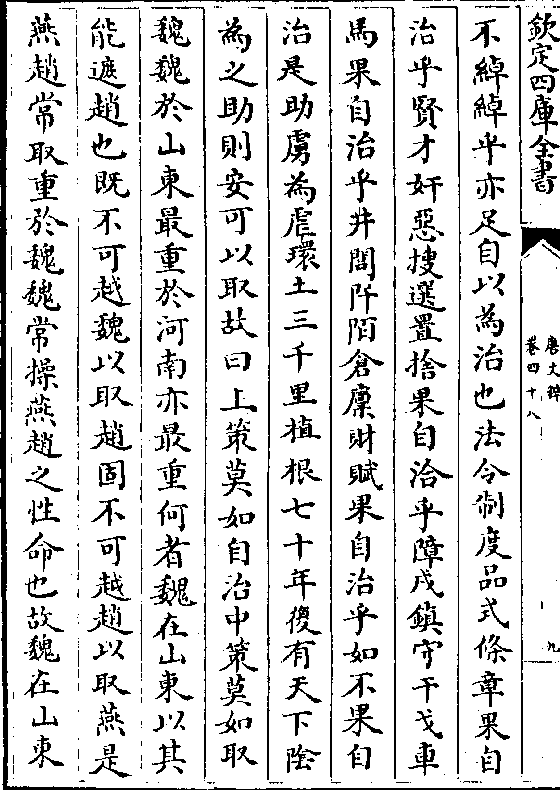 欽定四庫全書
唐文粹
卷四十八
九
不綽綽乎亦足自以為治也法令制度品式條章果自
治乎賢才奸惡搜選置捨果自治乎障戍鎮守干戈車
馬果自治乎井閭阡陌倉廩財賦果自治乎如不果自
治是助虜為虐環土三千里植根七十年復有天下陰
為之助則安可以取故曰上策莫如自治中策莫如取
魏魏於山東最重於河南亦最重何者魏在山東以其
能遮趙也既不可越魏以取趙固不可越趙以取燕是
燕趙常取重於魏魏常操燕趙之性命也故魏在山東